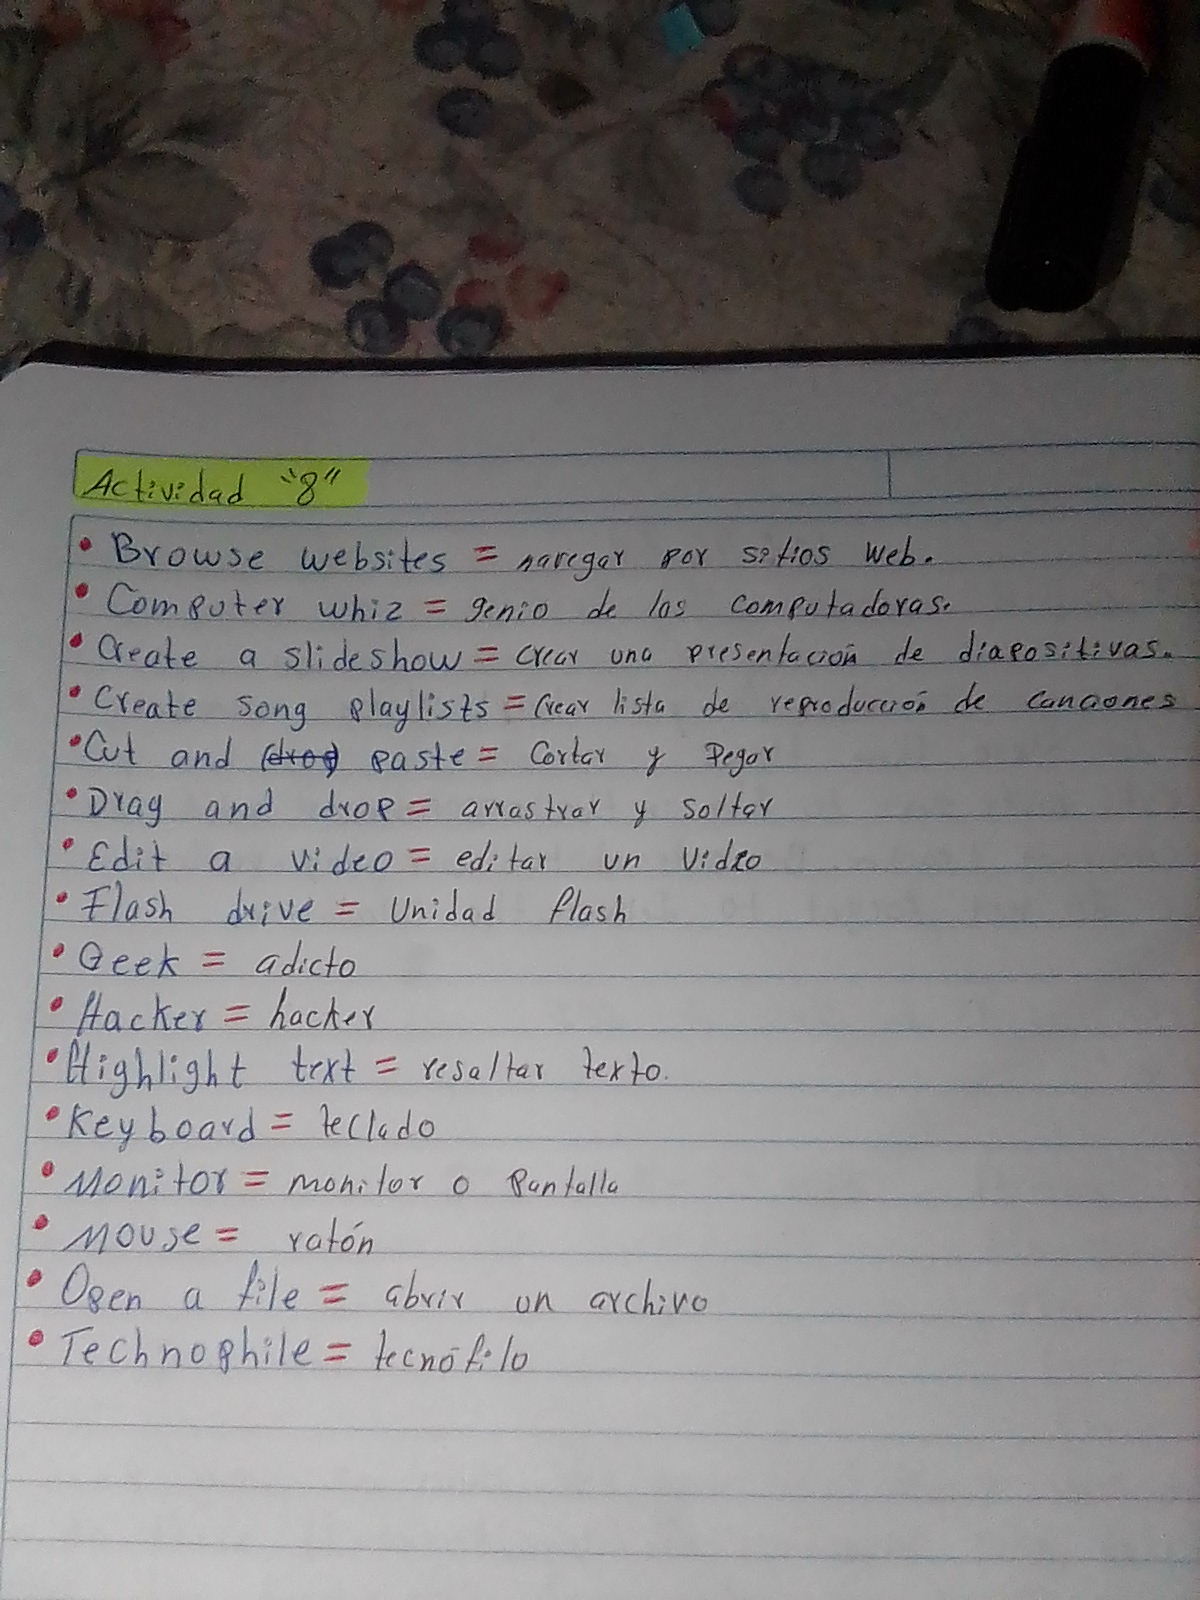 Actividad "8"
• Browse websites = navegar por sitios web.
• Computer whiz = genio de las computadoras.
• Create a slideshow = crear una presentación de diapositivas.
• Create song playlists = Crear lista de reproducción de canciones
• Cut and (drop) paste = Cortar y Pegar
• Drag and drop = arrastrar y soltar
• Edit a video = editar un video
• Flash drive = Unidad flash
• Geek = adicto
• Hacker = hacker
• Highlight text = resaltar texto.
• Keyboard = teclado
• Monitor = monitor o Pantalla
• Mouse = ratón
• Open a file = abrir un archivo
• Technophile = tecnófilo